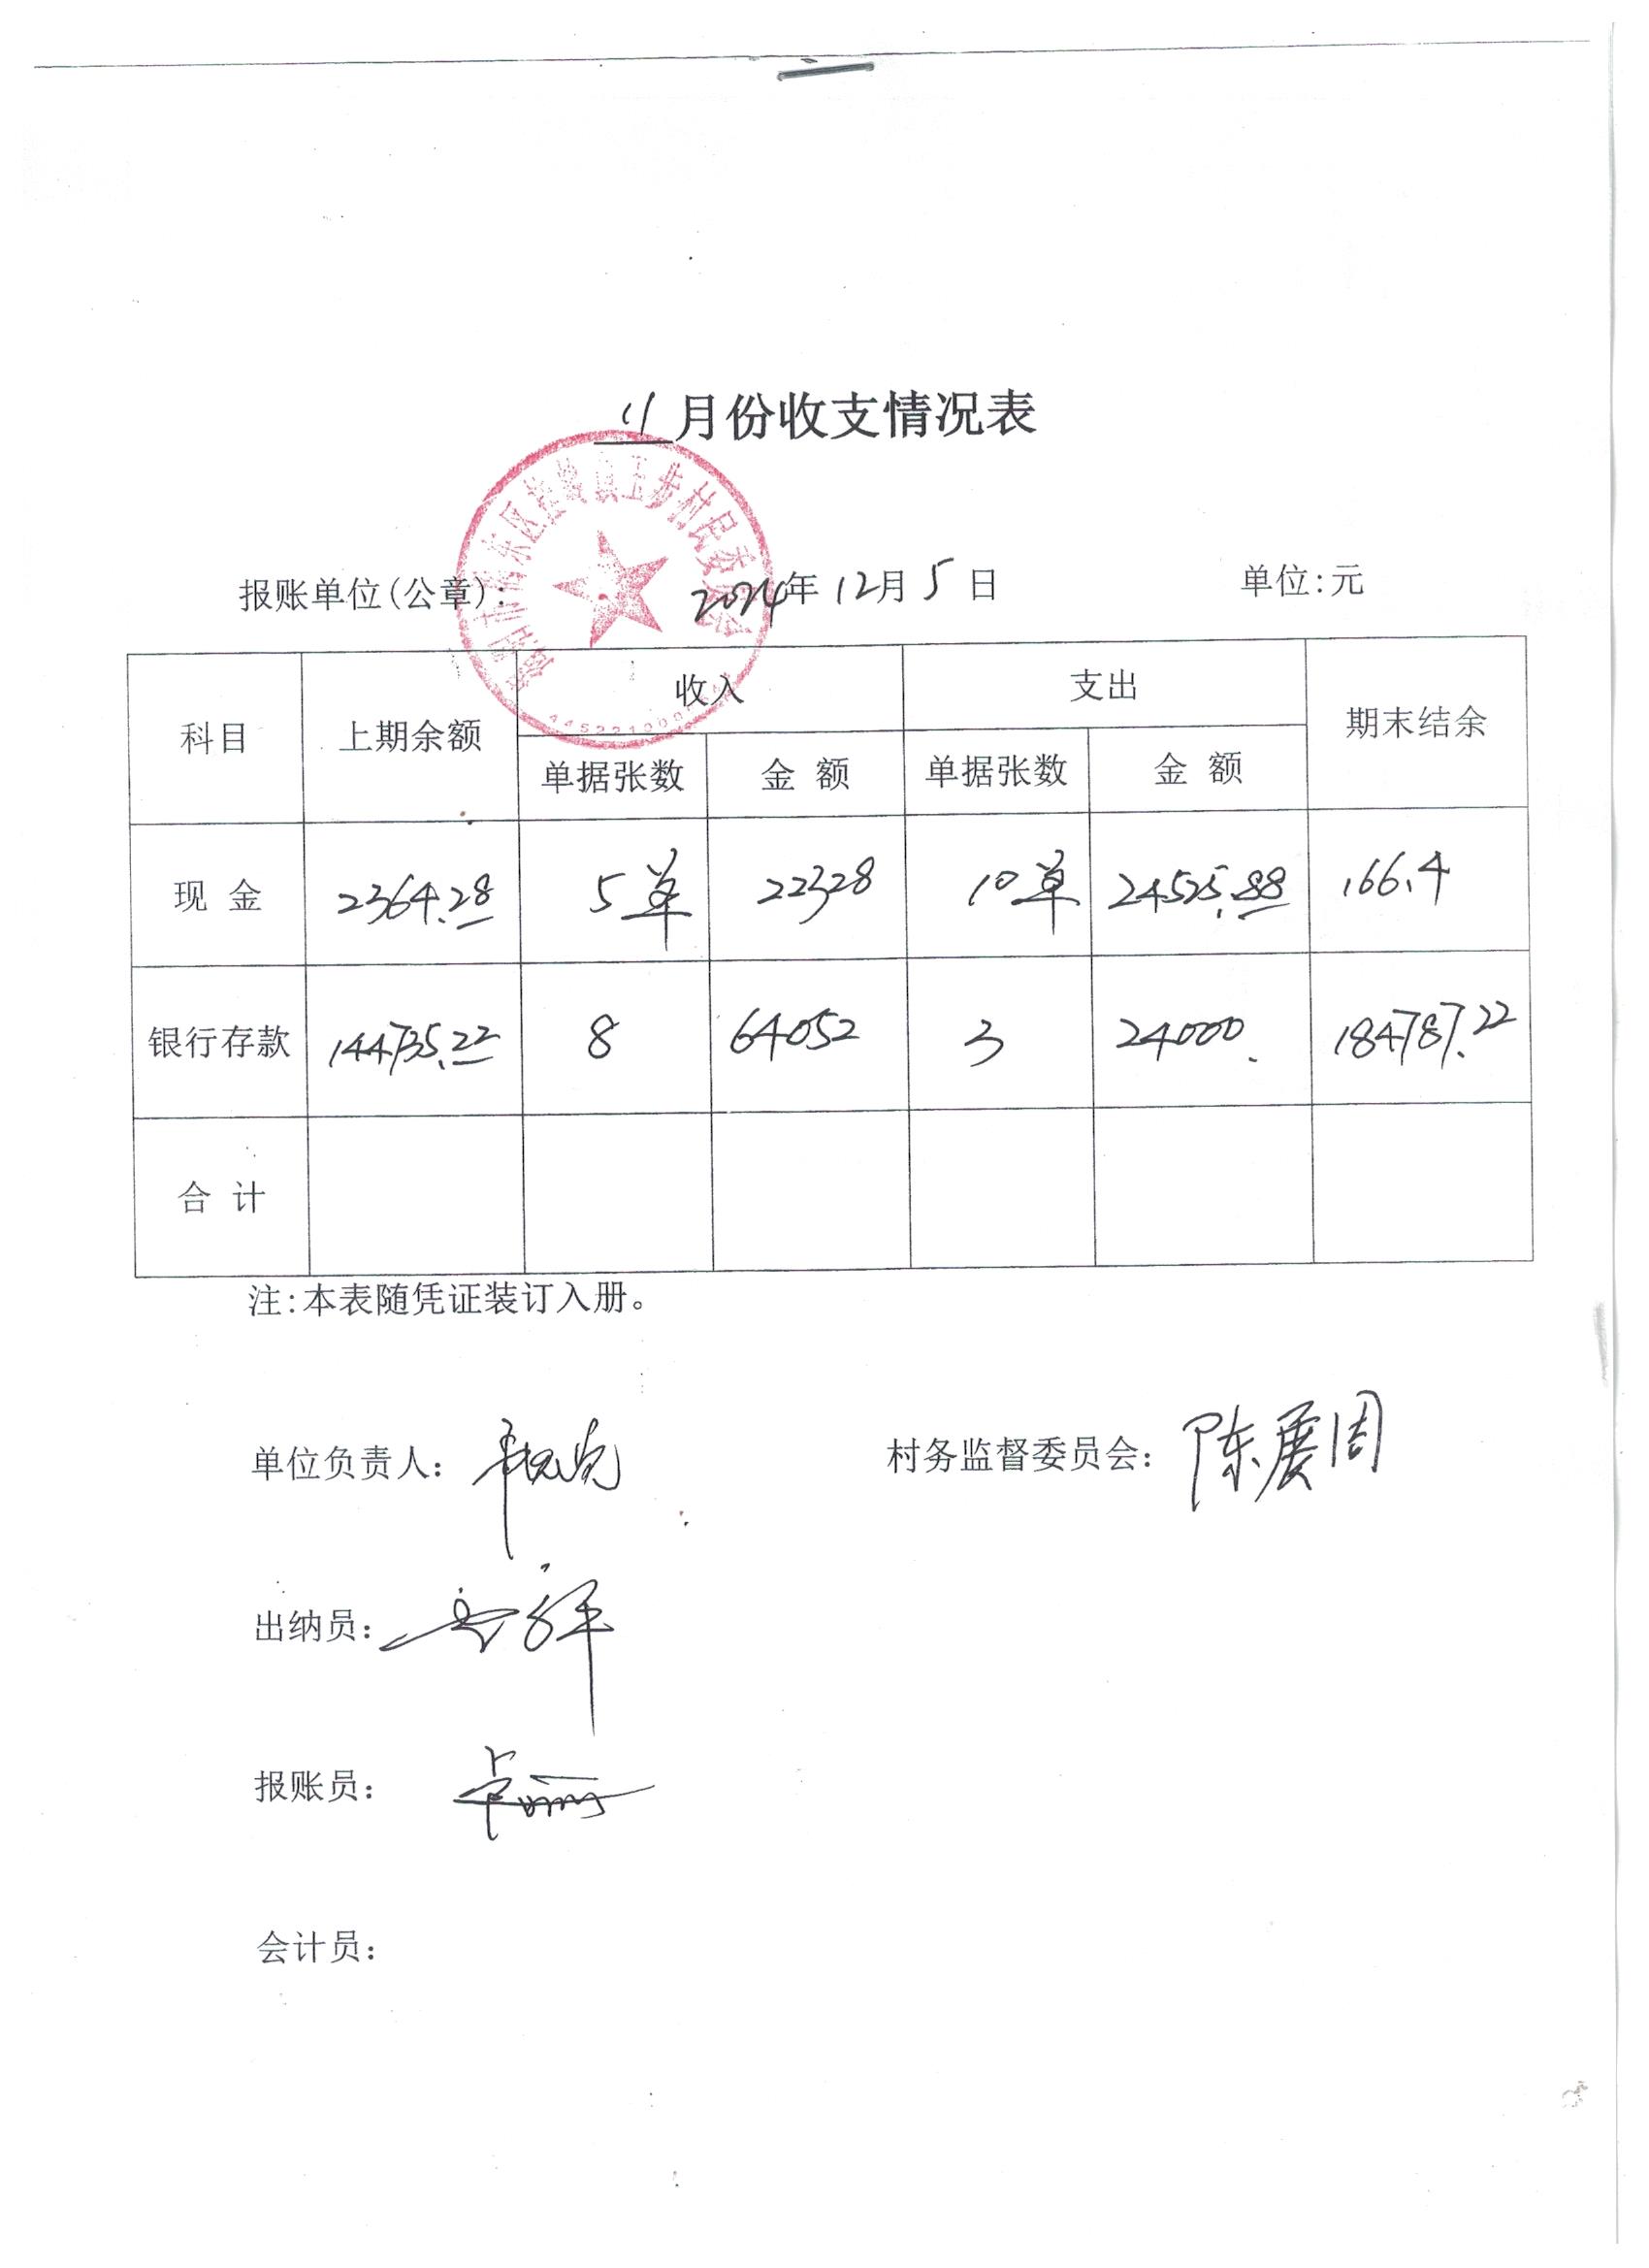 11月份收支情况表
报账单位(公章): 2024年12月5日 单位:元
科目 上期余额 收入 支出 期末结余
单据张数 金 额 单据张数 金 额
现 金 2364.28 5单 22328 10单 24525.88 166.4
银行存款 144735.22 8 64052 3 24000. 184787.22
合 计
注:本表随凭证装订入册。
单位负责人: 村务监督委员会: 陈展周
出纳员:
报账员:
会计员: